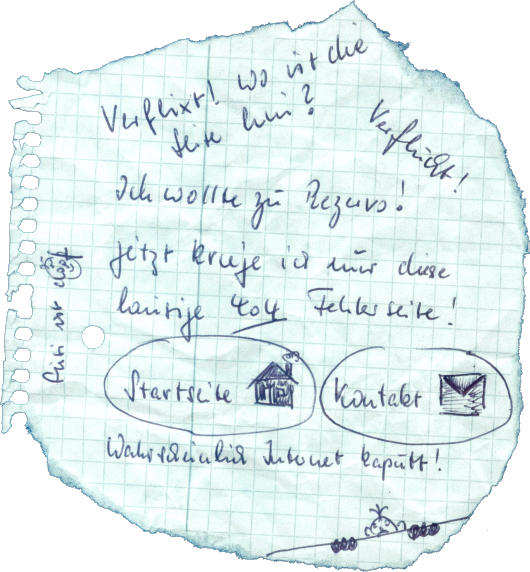 Verflixt! wo ist die
Seite hin?
Verflucht!
Ich wollte zu
jetzt kriege ich nur diese
lausige 404 Fehlerseite!
Startseite
Kontakt
Wahrscheinlich Internet kaputt!
ist doof